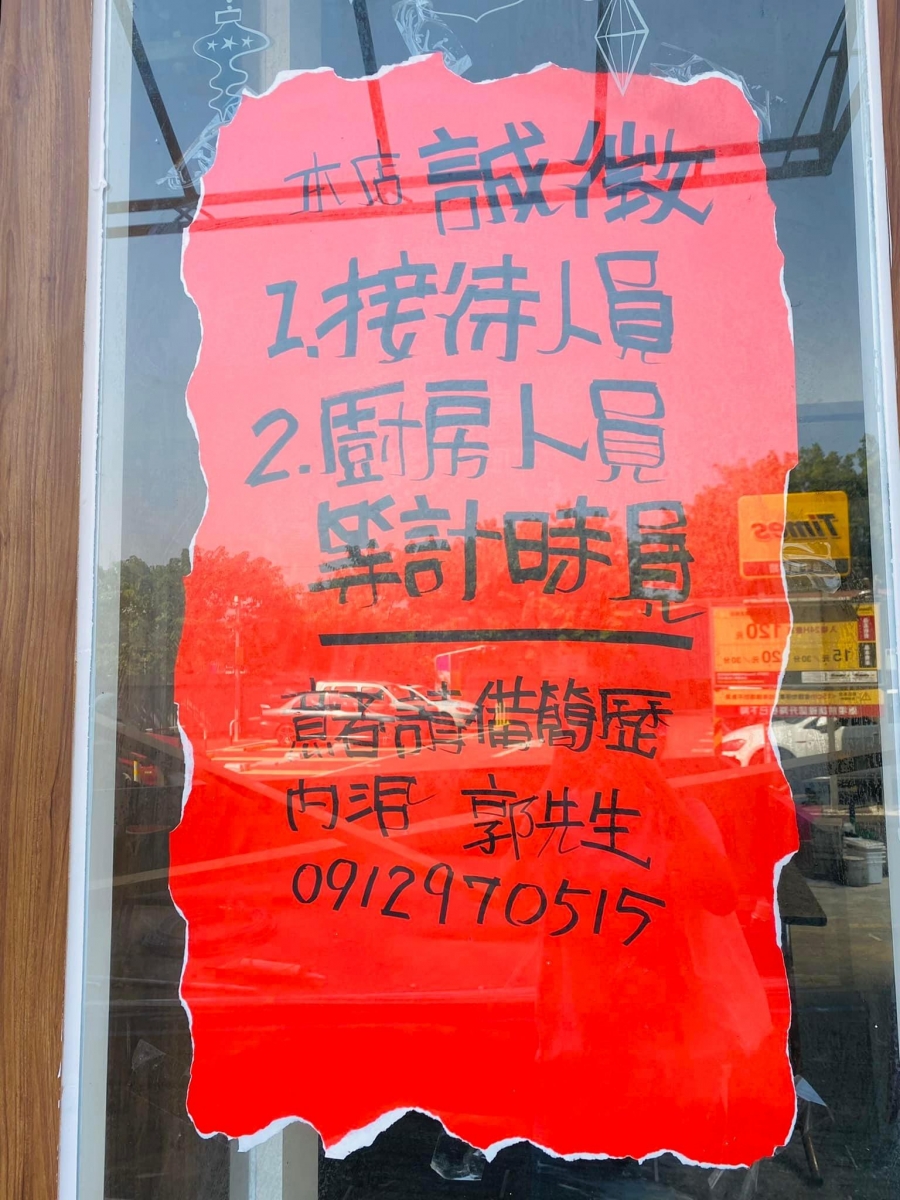 本店 誠徵
1.接待人員
2.廚房人員
等計時員
意者請備簡歷
內洽 郭先生
0912970515
Times
120元